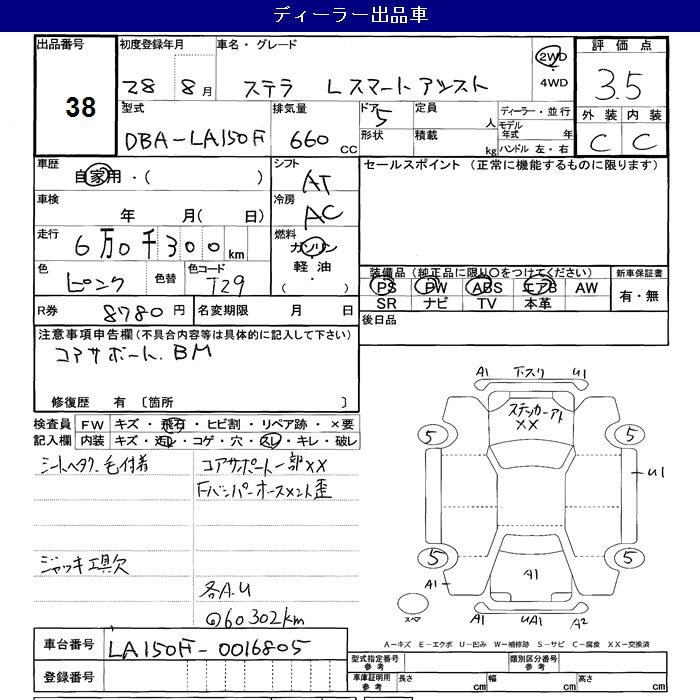 ディーラー出品車
出品番号
38
初度登録年月
28 8月
車名・グレード
ステラ Lスマートアシスト
2WD
・
4WD
評価点
3.5
外装 内装
C C
型式
DBA-LA150F
排気量
660 CC
ドア 5
形状
定員 人
積載 kg
ディーラー・並行
モデル年式 年
ハンドル 左・右
車歴
自家用・( )
シフト
AT
セールスポイント (正常に機能するものに限ります)
車検
年 月( 日)
冷房
AC
走行
6万0千300km
燃料
ガソリン
軽油・
( )
色
ピンク
色替
色コード
T29
装備品 (純正品に限り○をつけてください)
PS PW ABS エアB AW
SR ナビ TV 本革
新車保証書
有・無
R券 8780円
名変期限 月 日
後日品
注意事項申告欄 (不具合内容等は具体的に記入して下さい)
コアサポート、BM
修復歴 有 〔箇所 〕
検査員 FW キズ・飛石・ヒビ割・リペア跡・×要
記入欄 内装 キズ・汚レ・コゲ・穴・スレ・キレ・破レ
シートヘタク、毛付着
コアサポート一部XX
Fバンパーホースメント歪
ジャッキ工具欠
各A.U
60302km
A1 下スリ U1
ステッカーアト
XX
5 5
U1
5 5
A1
A1
スペア
A1 UA1 A2
A-キズ E-エクボ U-凹み W-補修跡 S-サビ C-腐食 XX-交換済
車台番号 LA150F-0016805
登録番号
型式指定番号 参考
類別区分番号 参考
車庫証明用 参考 長さ cm 幅 cm 高さ cm